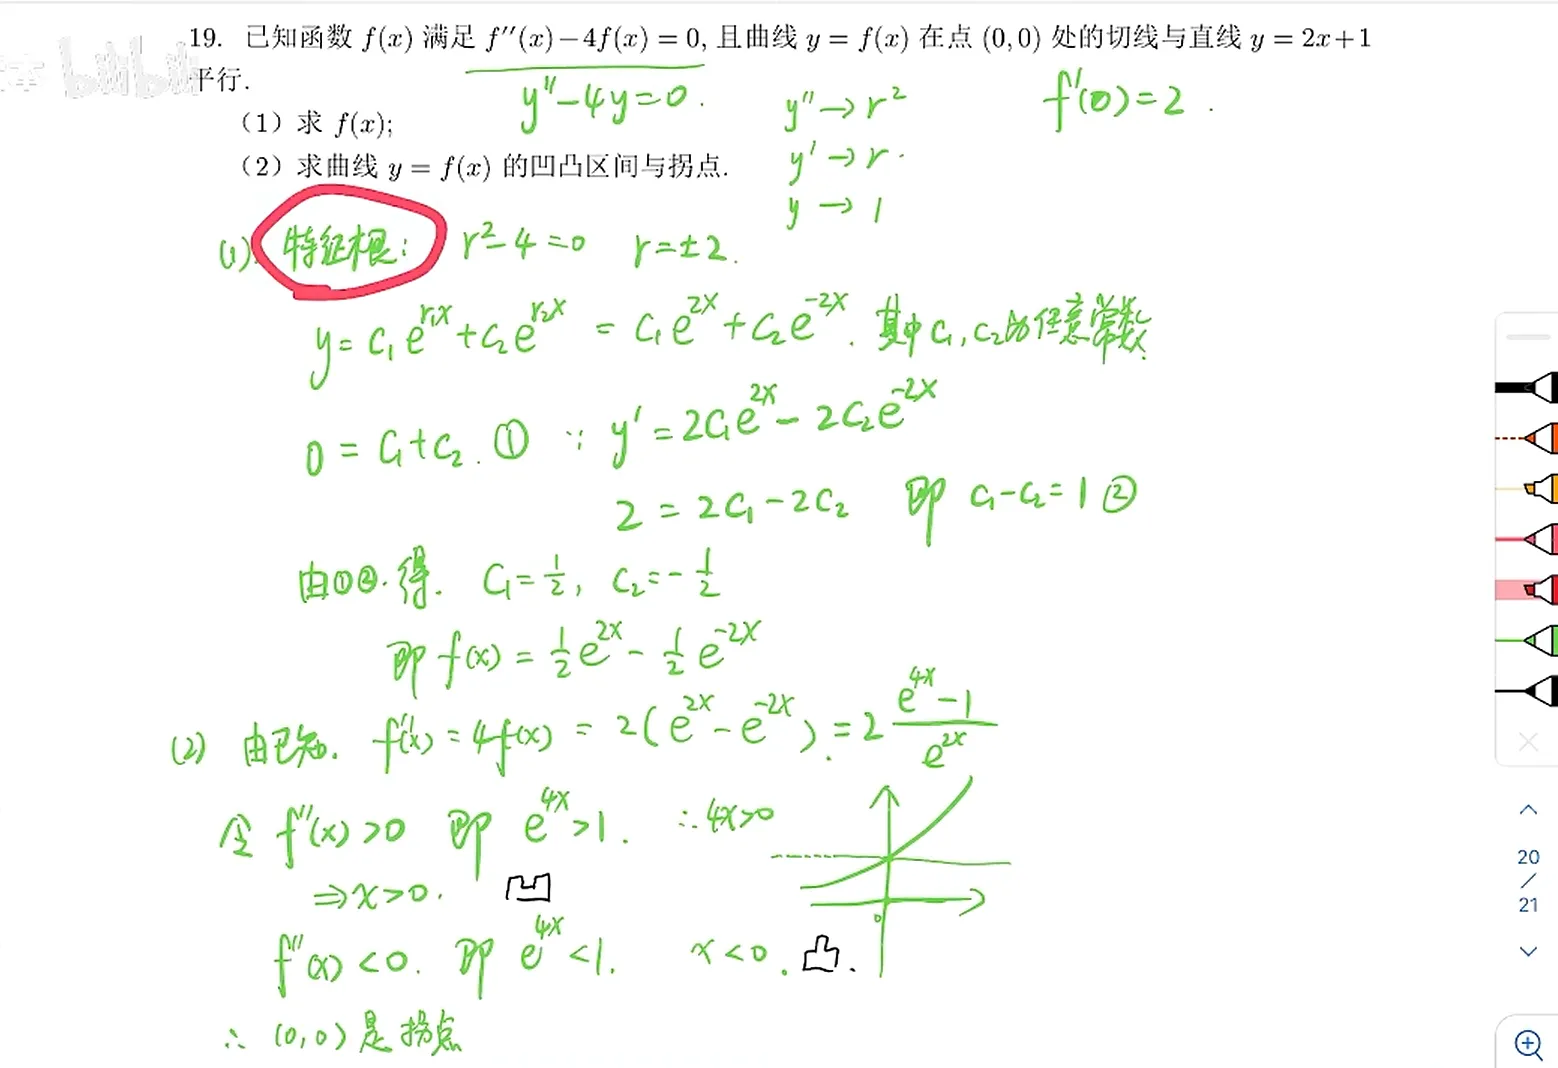 bilibili
19. 已知函数 f(x) 满足 f''(x)−4f(x) = 0, 且曲线 y = f(x) 在点 (0,0) 处的切线与直线 y = 2x+1
平行.
y''−4y=0.
y''→r²
f'(0)=2.
(1) 求 f(x);
y'→r.
(2) 求曲线 y = f(x) 的凹凸区间与拐点.
y→1
(1). 特征根: r²−4=0 r=±2.
y=C₁e^{r₁x}+C₂e^{r₂x} = C₁e^{2x}+C₂e^{−2x}. 其中C₁,C₂为任意常数.
0=C₁+C₂.① ∵ y'=2C₁e^{2x}−2C₂e^{−2x}
2=2C₁−2C₂ 即 C₁−C₂=1②
由①②.得. C₁=1/2, C₂=−1/2
即 f(x)=1/2 e^{2x}−1/2 e^{−2x}
(2) 由已知. f''(x)=4f(x)=2(e^{2x}−e^{−2x}).=2 (e^{4x}−1)/e^{2x}
令 f''(x)>0 即 e^{4x}>1. ∴4x>0
⇒x>0. 凹
0
f''(x)<0. 即 e^{4x}<1. x<0. 凸.
∴ (0,0)是拐点
20
/
21